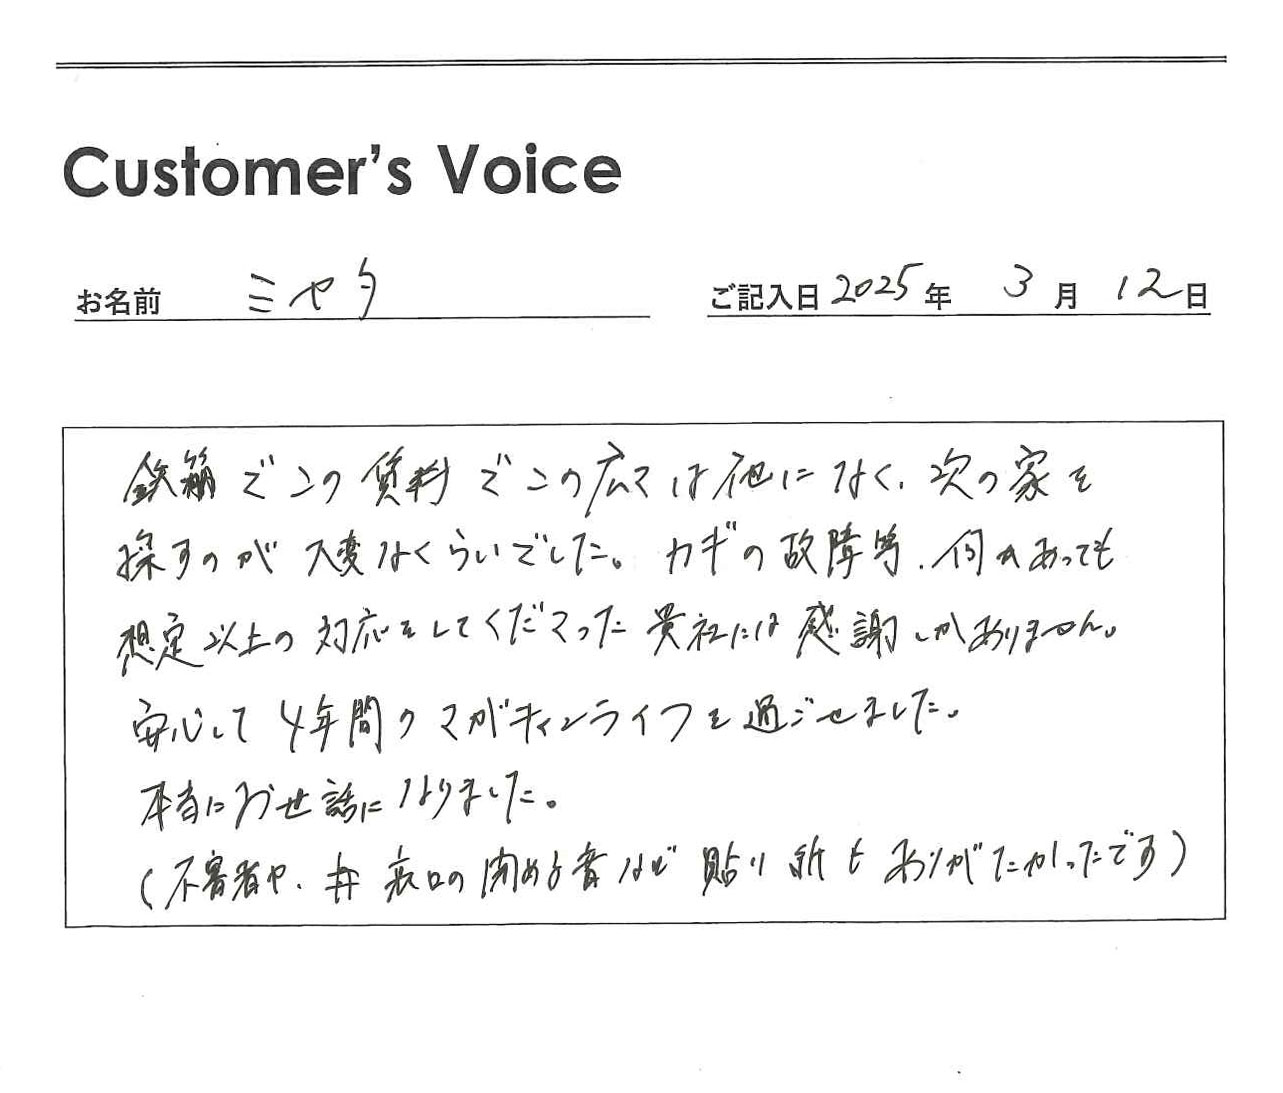 Customer's Voice
お名前 ミヤタ
ご記入日 2025年 3月 12日
鉄筋でこの賃料でこの広さは他になく、次の家を
探すのが大変なくらいでした。カギの故障等、何があっても
想定以上の対応をしてくださった貴社には感謝しかありません。
安心して4年間のマガキャンライフを過ごせました。
本当にお世話になりました。
(不審者や、共 玄口の閉める音など 貼り紙もありがたかったです)